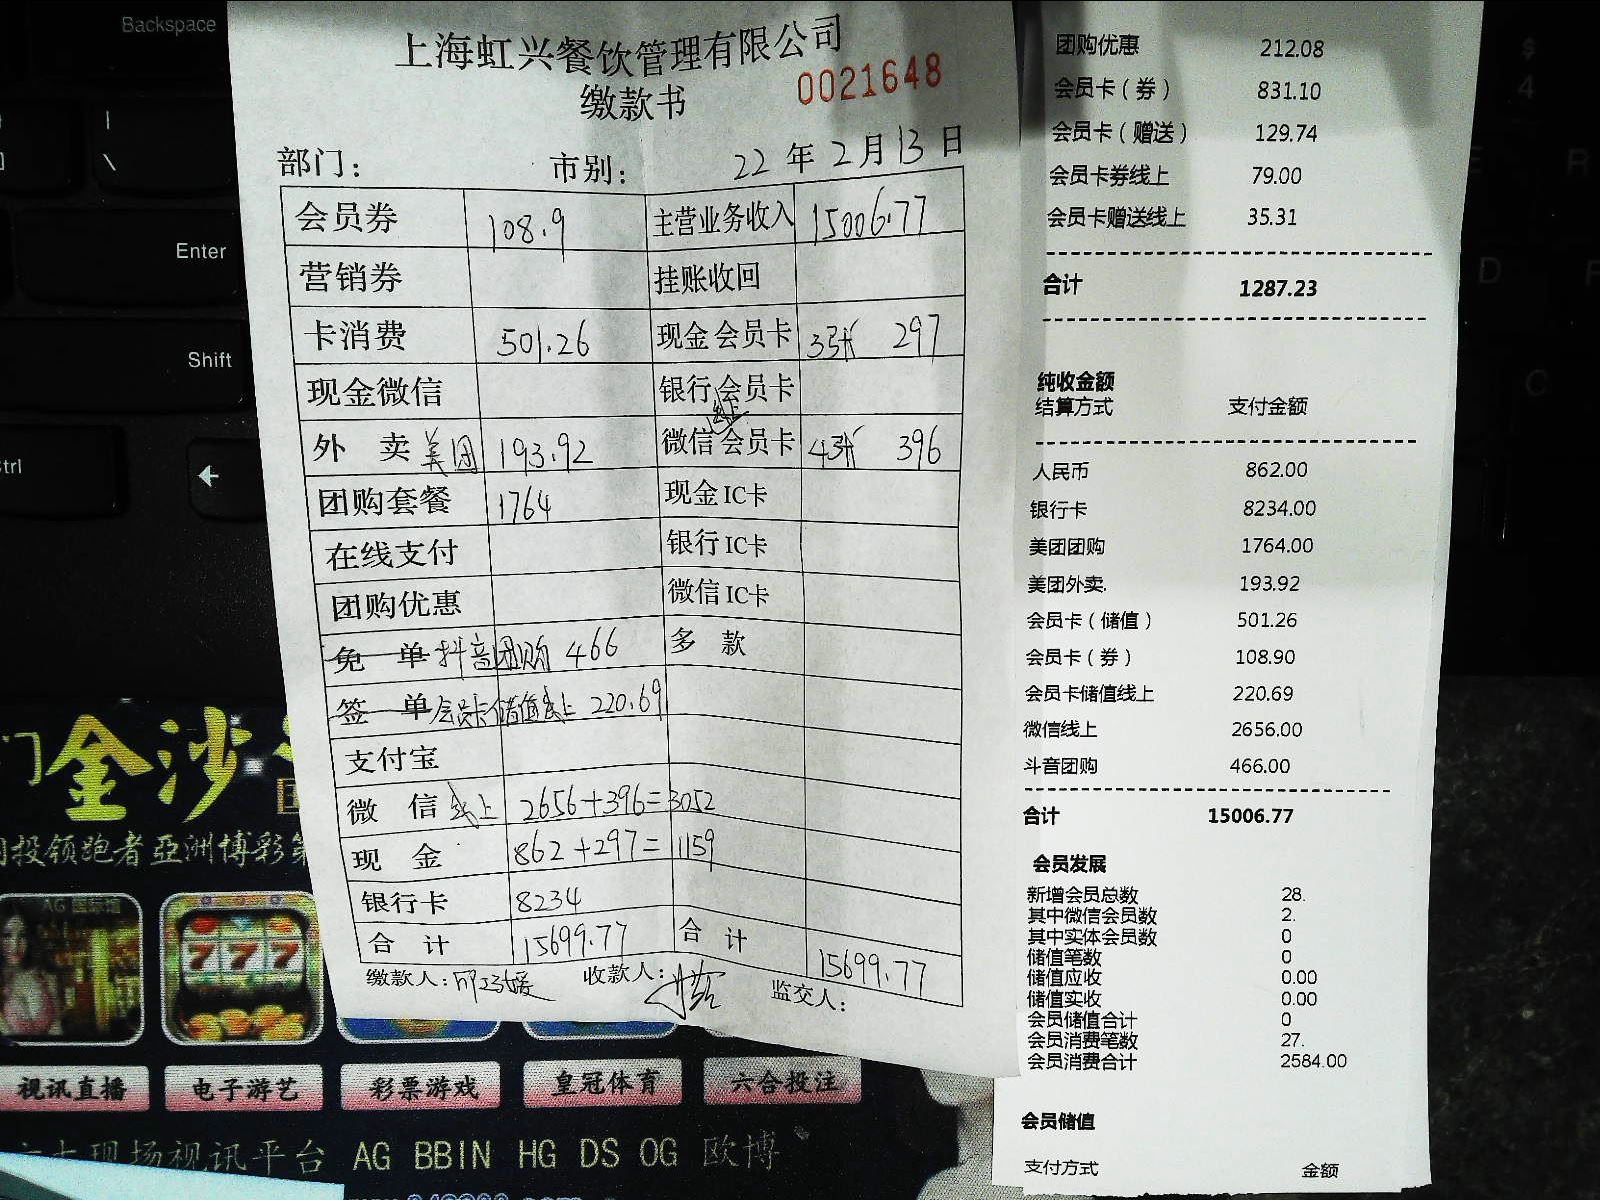 Backspace
Enter
Shift
上海虹兴餐饮管理有限公司
缴款书
0021648
部门：
市别：
22年2月13日
会员券 108.9 主营业务收入 15006.77
营销券 挂账收回
卡消费 501.26 现金会员卡 3张 297
现金微信 银行会员卡
外 卖 美团 193.92 微信线上会员卡 4张 396
团购套餐 1764 现金IC卡
在线支付 银行IC卡
团购优惠 微信IC卡
免 单 抖音团购 466 多 款
签 单 会员卡储值线上 220.69
支付宝
微 信 线上 2656+396=3052
现 金 862+297= 1159
银行卡 8234
合 计 15699.77 合 计 15699.77
缴款人： 收款人： 监交人：
团购优惠 212.08
会员卡（券） 831.10
会员卡（赠送） 129.74
会员卡券线上 79.00
会员卡赠送线上 35.31
合计 1287.23
纯收金额
结算方式 支付金额
人民币 862.00
银行卡 8234.00
美团团购 1764.00
美团外卖. 193.92
会员卡（储值） 501.26
会员卡（券） 108.90
会员卡储值线上 220.69
微信线上 2656.00
斗音团购 466.00
合计 15006.77
会员发展
新增会员总数 28.
其中微信会员数 2.
其中实体会员数 0
储值笔数 0
储值应收 0.00
储值实收 0.00
会员储值合计 0
会员消费笔数 27.
会员消费合计 2584.00
会员储值
支付方式 金额
门金沙
投领跑者亞洲博彩第
AG 国际馆
777
视讯直播 电子游艺 彩票游戏 皇冠体育 六合投注
现场视讯平台 AG BBIN HG DS OG 欧博